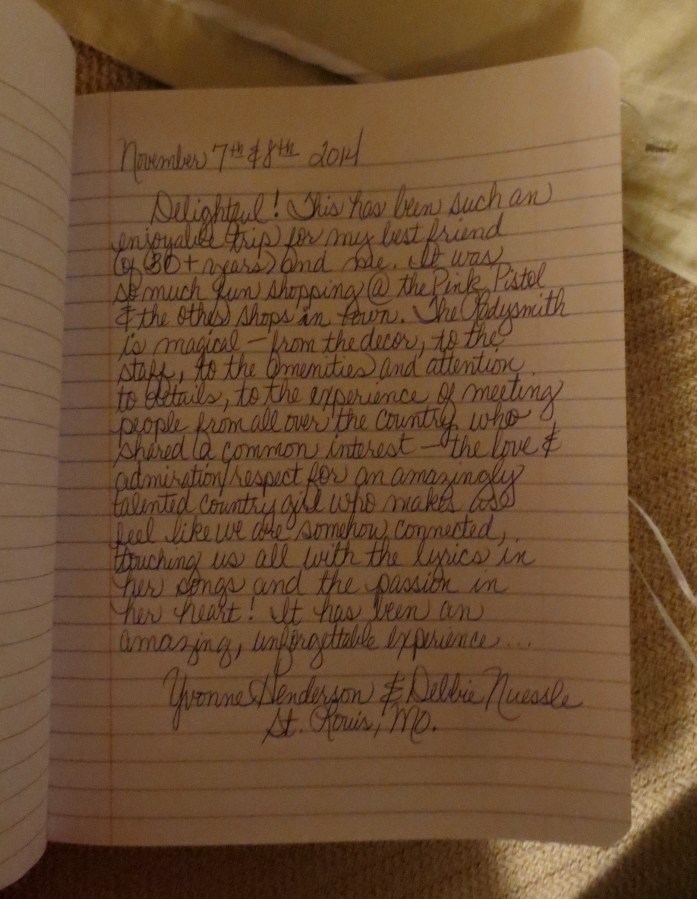 November 7th & 8th 2014
Delightful! This has been such an
enjoyable trip for my best friend
(of 30+ years) and me. It was
so much fun shopping @ the Pink Pistol
& the other shops in town. The Ladysmith
is magical — from the decor, to the
staff, to the amenities and attention
to details, to the experience of meeting
people from all over the country who
shared a common interest — the love &
admiration/respect for an amazingly
talented country girl who makes us
feel like we are somehow connected,
touching us all with the lyrics in
her songs and the passion in
her heart! It has been an
amazing, unforgettable experience...
Yvonne Henderson & Debbie Nuessle
St. Louis, MO.